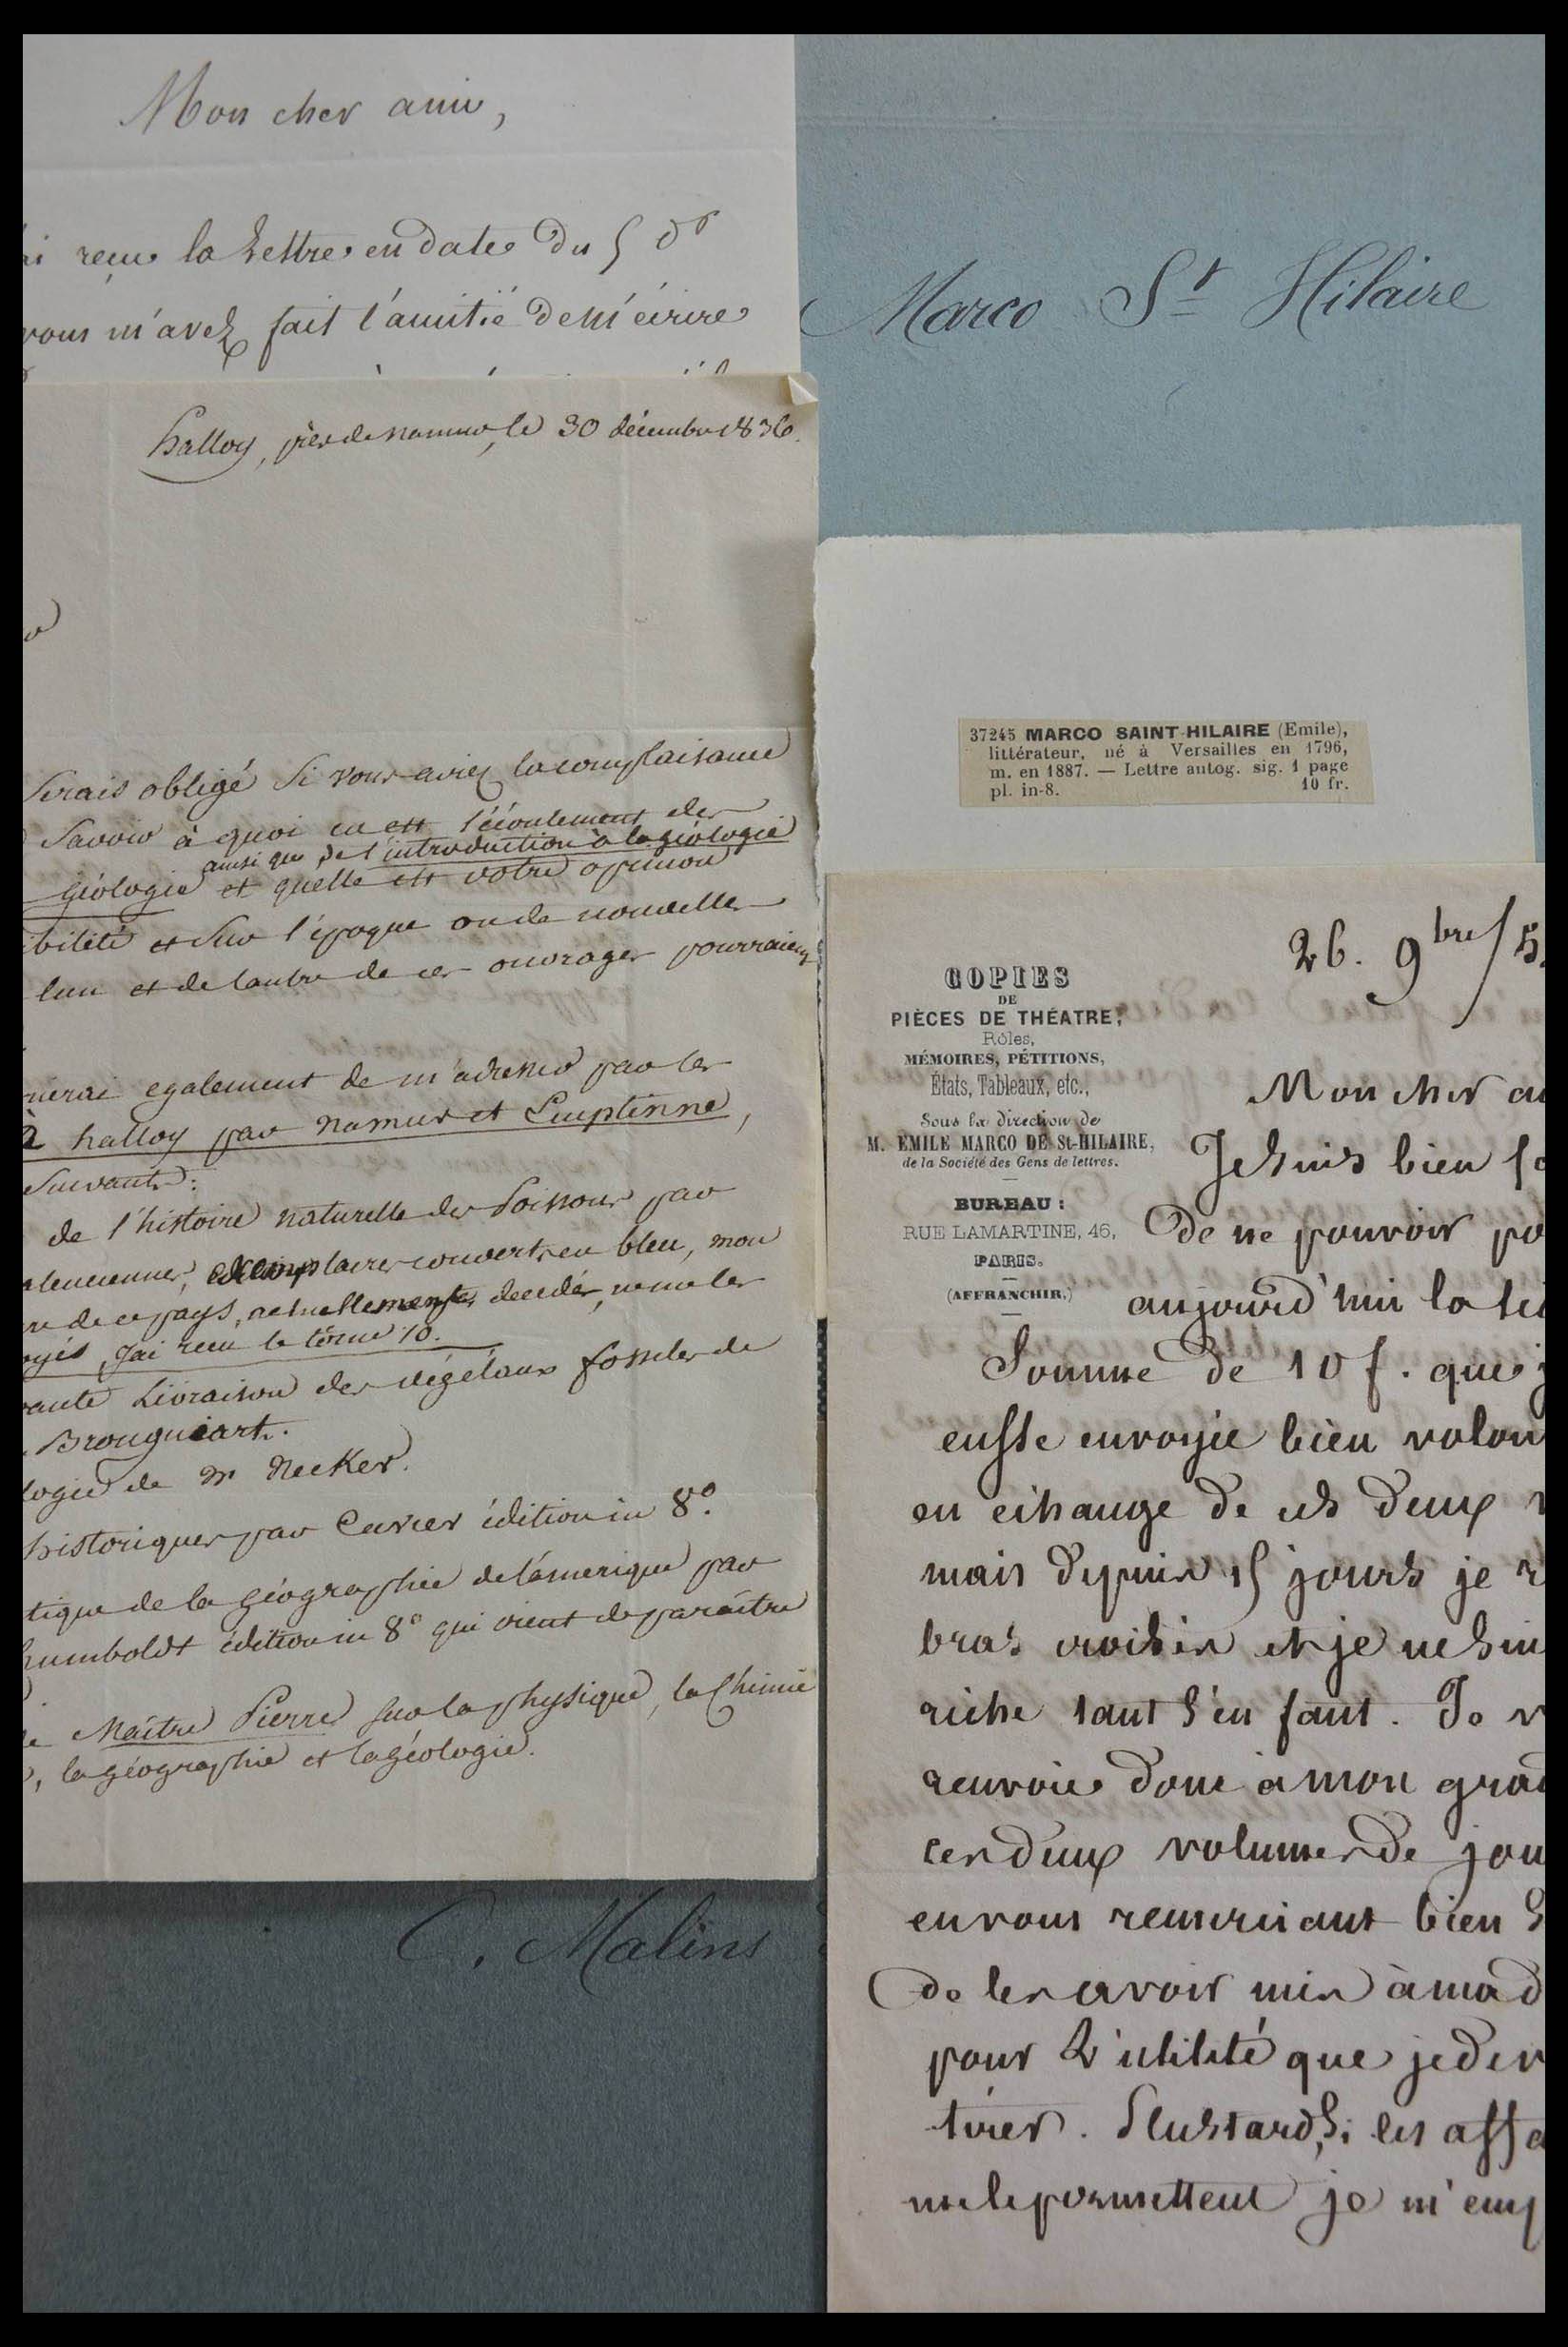 Mon cher ami,
ai reçu la lettre en date du 5 d
vous m'avez fait l'amitié de m'écrire
halloy, près de namur, le 30 décembre 1836.
Serais obligé si vous aviez la complaisance
savoir à quoi en est l'écoulement des
ainsi que de l'introduction à la géologie
géologie et quelle est votre opinion
ibilité et sur l'époque ou de nouvelles
l'un et de l'autre de ces ouvrages pourraient
nerai egalement de m'adresser par les
à halloy par namur et Emptinne,
suivants:
de l'histoire naturelle des Poissons par
alenciennes, exemplaires couverts en bleu, mon
re de ce pays, actuellement decedé,
oyés, j'ai recu le tôme 10.
vante Livraison des végétaux fossiles de
Brongniart.
logie de Mr Necker.
historiques par Cuvier édition in 8º.
tique de la géographie de l'amerique par
humboldt édition in 8º qui vient de paraître
Maître Pierre sur la physique, la Chimie
, la géographie et la géologie.
C. Malins
Marco St Hilaire
37245 MARCO SAINT-HILAIRE (Emile),
littérateur, né à Versailles en 1796,
m. en 1887. — Lettre autog. sig. 1 page
pl. in-8. 10 fr.
COPIES
DE
PIÈCES DE THÉATRE,
Rôles,
MÉMOIRES, PÉTITIONS,
États, Tableaux, etc.,
Sous la direction de
M. EMILE MARCO DE St-HILAIRE,
de la Société des Gens de lettres.
BUREAU :
RUE LAMARTINE, 46,
PARIS.
(AFFRANCHIR.)
26. 9bre / 5
Mon cher a
Je suis bien
de ne pouvoir po
aujourd'hui la
Somme de 10 f. que j
eusse envoyée bien volon
en échange de ces deux
mais depuis 15 jours je
bras croisés et je ne sui
riche tant s'en faut. Je v
renvoie donc à mon gra
ces deux volumes de jou
en vous remerciant bien
de les avoir mis à ma d
pour l'utilité que j'
tirer. Plus tard, si les affa
me le permettent je m'emp